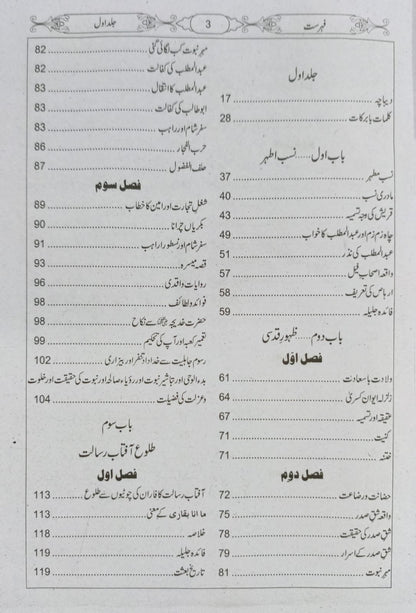 فہرست
3
جلد اول
جلد اول
دیباچہ 17
کلمات بابرکات 28
باب اول ..... نسب اطہر
نسب مطہر 37
مادری نسب 40
قریش کی وجہ تسمیہ 43
چاہ زمزم اور عبدالمطلب کا خواب 49
عبدالمطلب کی نذر 51
واقعہ اصحاب فیل 57
ارہاص کی تعریف 58
فائدہ جلیلہ 59
باب دوم ..... ظہور قدسی
فصل اوّل
ولادت باسعادت 61
زلزلہ ایوان کسریٰ 64
عقیقہ اور تسمیہ 67
کنیت 71
ختنہ 71
فصل دوم
حضانت و رضاعت 72
واقعہ شق صدر 75
شق صدر کی حقیقت 78
شق صدر کے اسرار 79
مہر نبوت 81
مہر نبوت کب لگائی گئی 82
عبدالمطلب کی کفالت 82
عبدالمطلب کا انتقال 83
ابوطالب کی کفالت 83
سفر شام اور راہب 83
حرب الفجار 86
حلف الفضول 87
فصل سوم
شغل تجارت اور امین کا خطاب 89
بکریاں چرانا 90
سفر شام اور نسطورا راہب 91
قصہ میسرہ 93
روایات واقدی 96
فوائد و لطائف 98
حضرت خدیجہ سے نکاح 98
تعمیر کعبہ اور آپ کی تحکیم 99
رسوم جاہلیت سے خداداد تنفر اور بیزاری 102
بدء الوحی اور تباشیر نبوت اور رؤیاء صالحہ اور نبوت کی حقیقت اور خلوت
و عزلت کی فضیلت 104
باب سوم
طلوع آفتاب رسالت
فصل اول
آفتاب رسالت کا فاران کی چوٹیوں سے طلوع 113
ما انا بقاری کے معنی 113
خلاصہ 118
فائدہ جلیلہ 119
تاریخ بعثت 119